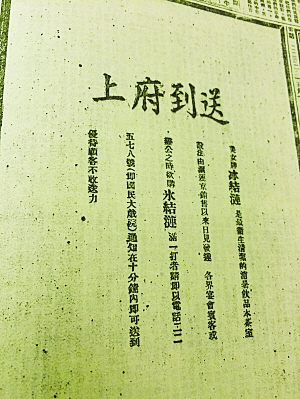 送到府上
美女牌冰結漣是最衛生清潔的消暑飲品本茶室
設由滬運京銷售以來日見發達　各界宴會賓客或
辦公之時欲購冰結漣滿一打者請即以電話二二一
五七八號(即國民大戲院)通知在十分鐘內即可送到
優待顧客不收送力